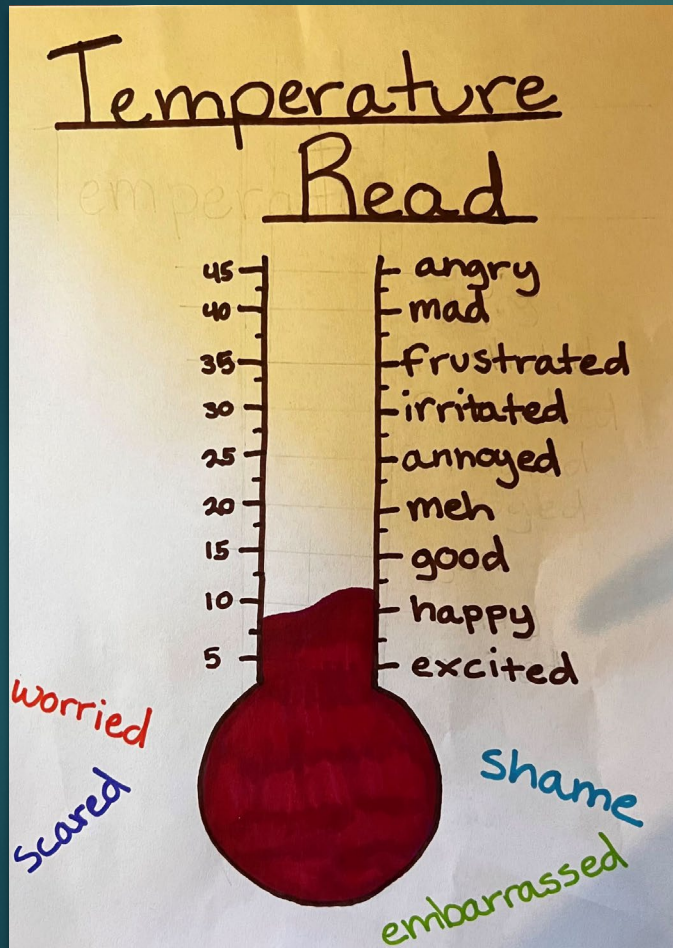 Temperature
Read
45 angry
40 mad
35 frustrated
30 irritated
25 annoyed
20 meh
15 good
10 happy
5 excited
worried
scared
shame
embarrassed